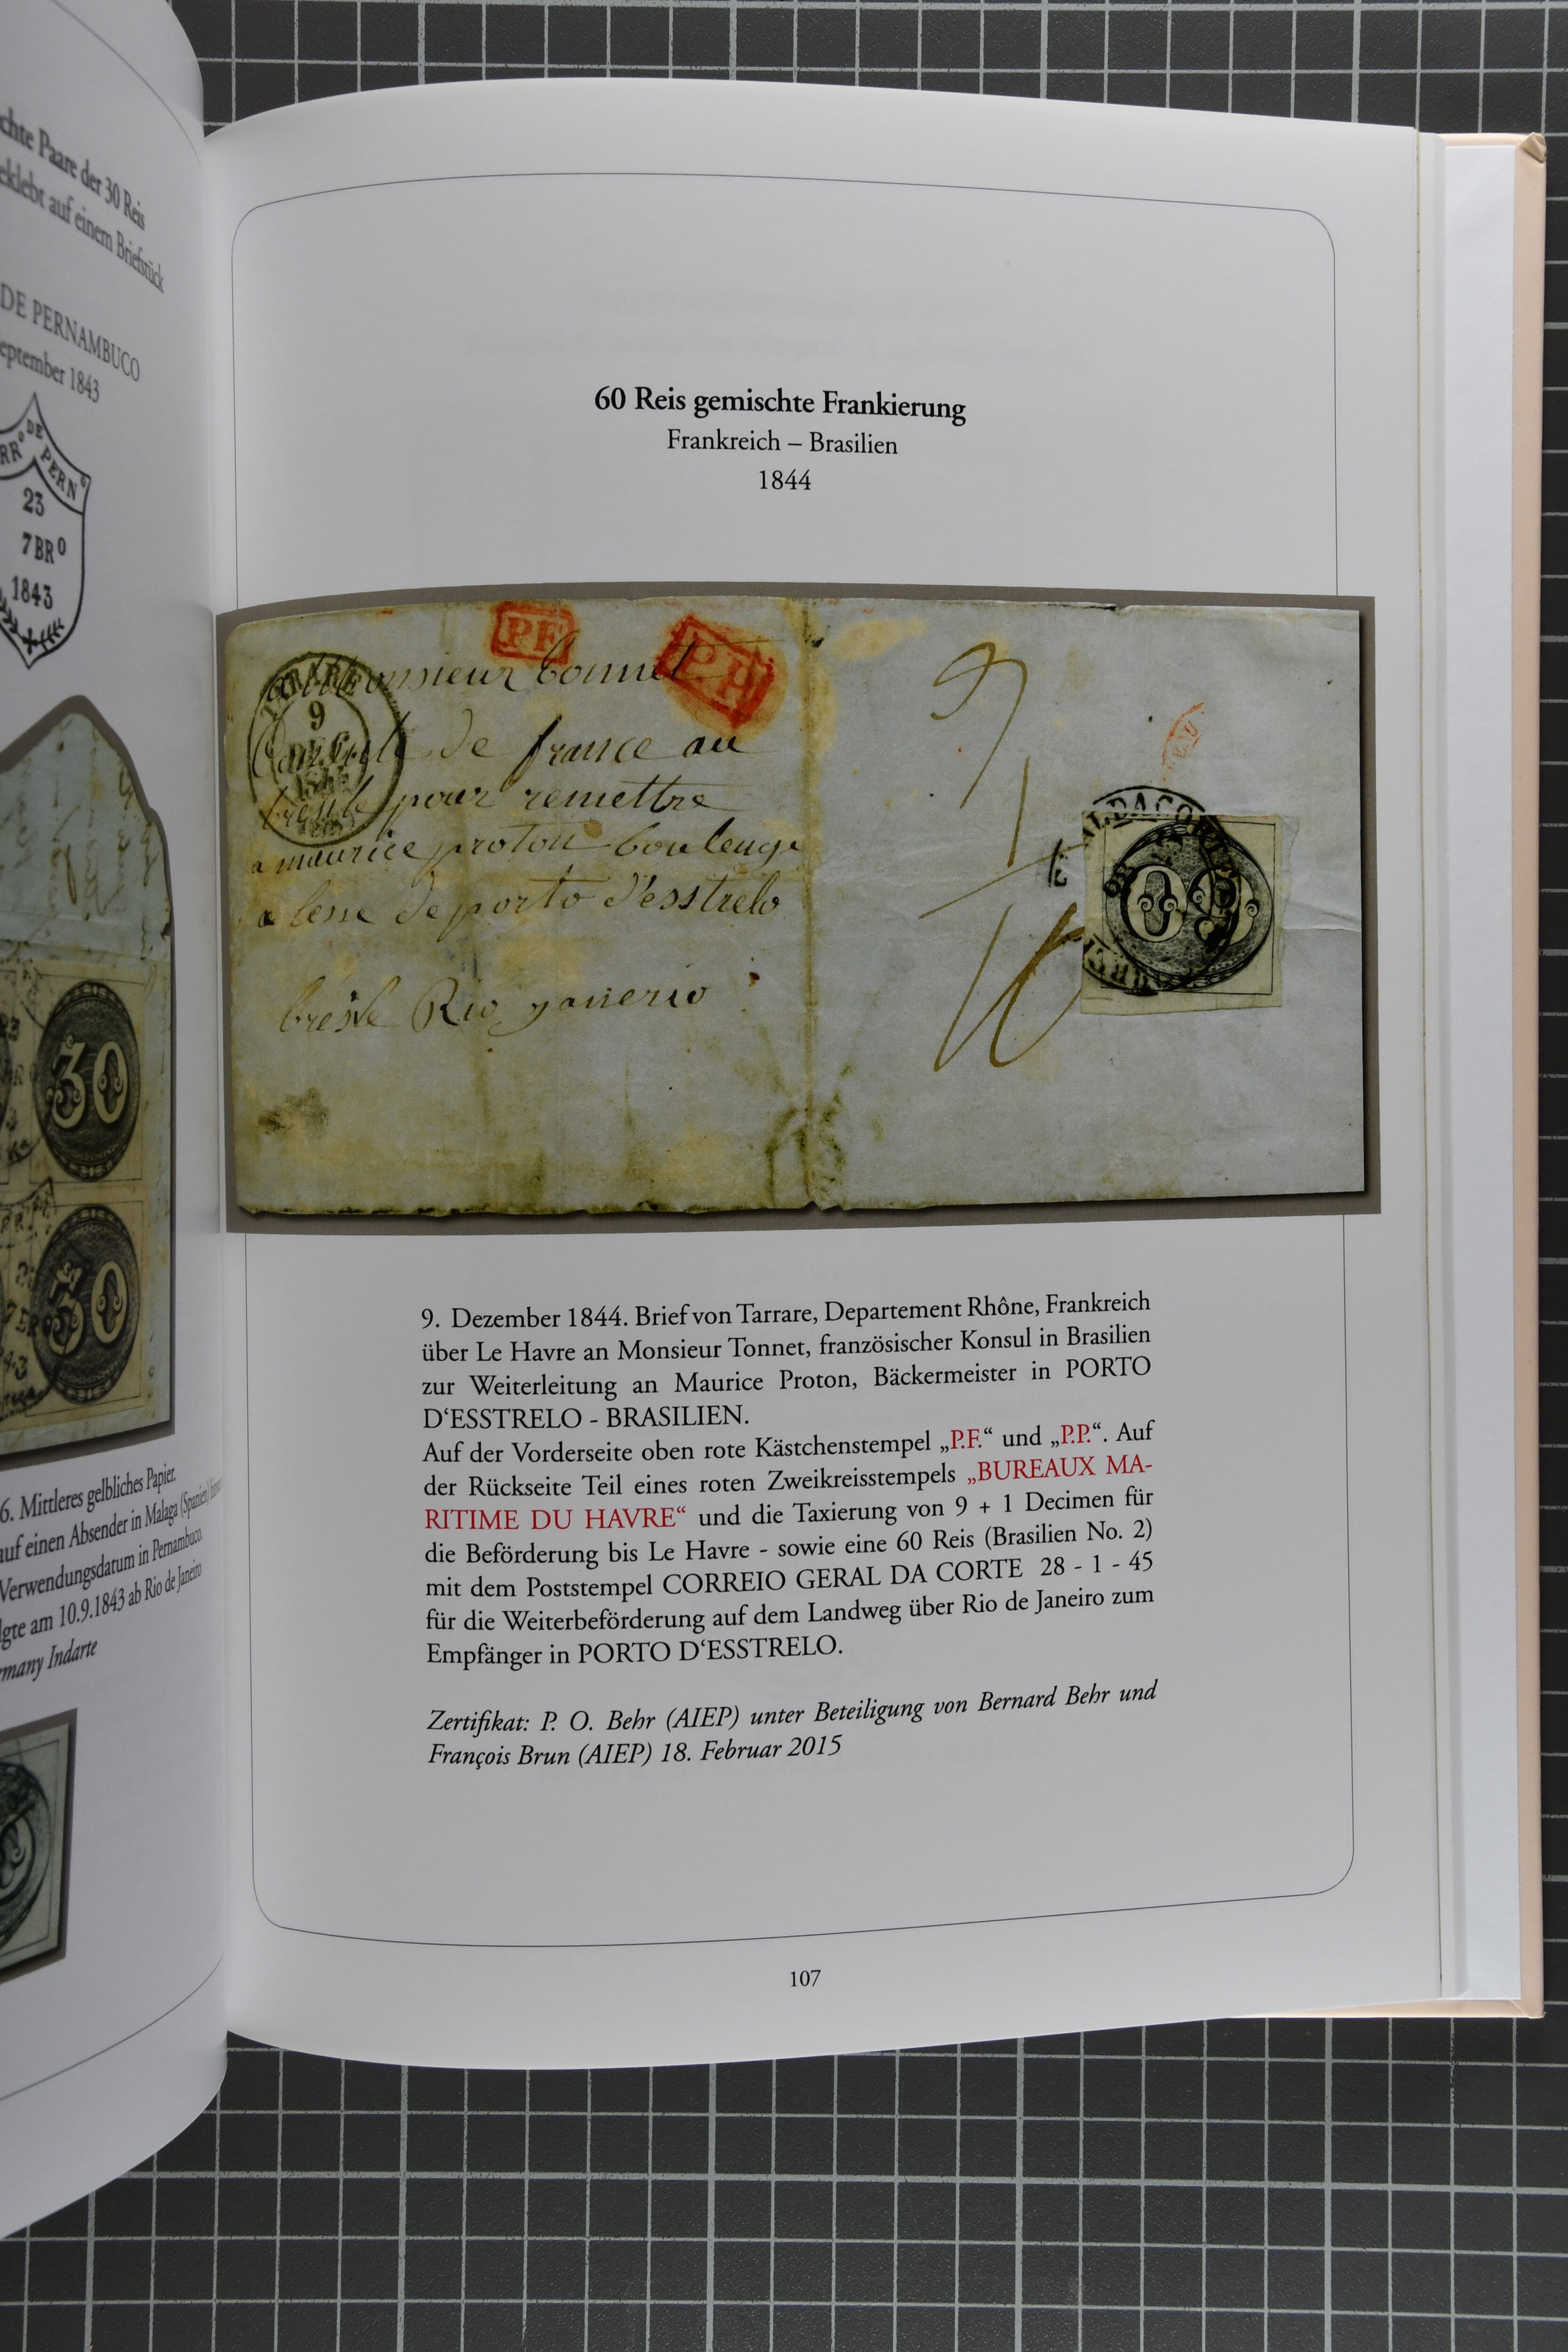 chte Paare der 30 Reis
eklebt auf einem Briefstück
DE PERNAMBUCO
eptember 1843
RRº DE PERNº
23
7BRº
1843
30
30
6. Mittleres gelbliches Papier.
auf einen Absender in Malaga (Spanien)
Verwendungsdatum in Pernambuco.
lgte am 10.9.1843 ab Rio de Janeiro
rmany Indarte
60 Reis gemischte Frankierung
Frankreich – Brasilien
1844
PF
PP
TARARE
9
Monsieur Connet
Consule de france au
bresile pour remettre
a maurice proton boulenge
a lesse de porto d'esstrelo
bresile Rio yanerio
9
1
10
ALDACORTE
60
9. Dezember 1844. Brief von Tarrare, Departement Rhône, Frankreich
über Le Havre an Monsieur Tonnet, französischer Konsul in Brasilien
zur Weiterleitung an Maurice Proton, Bäckermeister in PORTO
D‘ESSTRELO - BRASILIEN.
Auf der Vorderseite oben rote Kästchenstempel „P.F.“ und „P.P.“. Auf
der Rückseite Teil eines roten Zweikreisstempels „BUREAUX MA-
RITIME DU HAVRE“ und die Taxierung von 9 + 1 Decimen für
die Beförderung bis Le Havre - sowie eine 60 Reis (Brasilien No. 2)
mit dem Poststempel CORREIO GERAL DA CORTE 28 - 1 - 45
für die Weiterbeförderung auf dem Landweg über Rio de Janeiro zum
Empfänger in PORTO D‘ESSTRELO.
Zertifikat: P. O. Behr (AIEP) unter Beteiligung von Bernard Behr und
François Brun (AIEP) 18. Februar 2015
107